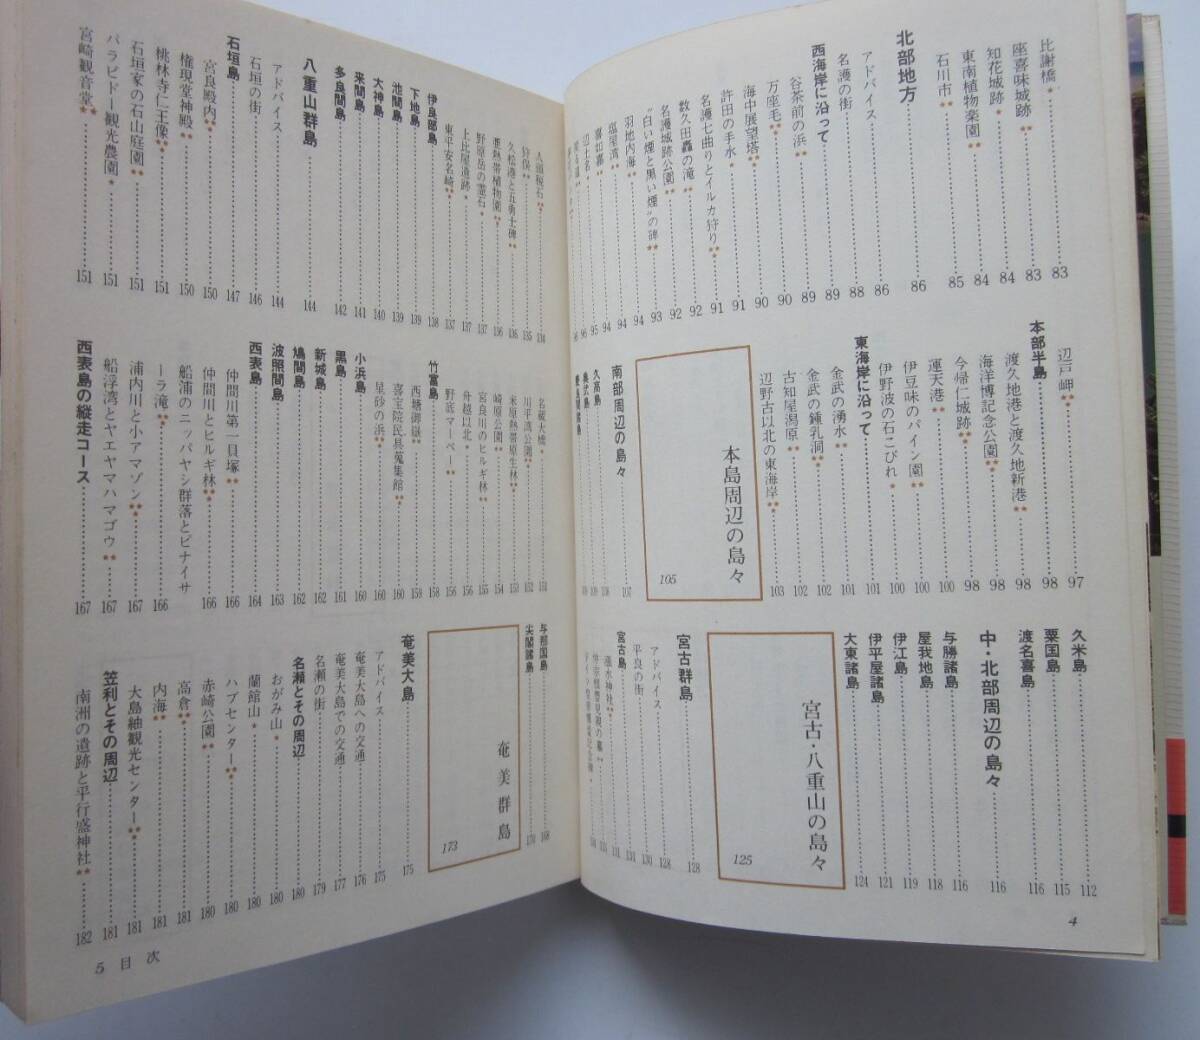 比謝橋*……83
座喜味城跡**……83
知花城跡*……84
東南植物楽園**……84
石川市*……85
北部地方……86
アドバイス……86
名護の街……88
西海岸に沿って……89
谷茶前の浜**……89
万座毛**……90
海中展望塔**……90
許田の手水*……91
名護七曲りとイルカ狩り**……91
数久田轟の滝*……92
名護城跡公園**……92
"白い煙と黒い煙"の碑**……93
羽地内海**……94
塩屋湾*……94
喜如嘉*……95
辺土名……96
辺戸岬**……97
本部半島……98
渡久地港と渡久地新港**……98
海洋博記念公園**……98
今帰仁城跡**……98
運天港*……100
伊豆味のパイン園**……100
伊野波の石こびれ*……100
東海岸に沿って……101
金武の湧水**……101
金武の鍾乳洞**……102
古知屋潟原*……102
辺野古以北の東海岸**……103
本島周辺の島々
105
南部周辺の島々……107
久高島……109
久米島……112
粟国島……115
渡名喜島……116
中・北部周辺の島々……116
与勝諸島……116
屋我地島……118
伊江島……119
伊平屋諸島……121
大東諸島……124
宮古・八重山の島々
125
宮古群島……128
アドバイス……128
平良の街……130
宮古島……131
漲水神社**……131
4
人頭税石**……134
狩俣**……135
久松港と五勇士碑**……136
亜熱帯植物園**……136
野原岳の霊石*……137
上比屋遺跡*……137
東平安名崎**……137
伊良部島……138
下地島……139
池間島……139
大神島……140
来間島……141
多良間島……142
八重山群島……144
アドバイス……144
石垣の街……146
石垣島……147
宮良殿内**……150
権現堂神殿**……150
桃林寺仁王像**……151
石垣家の石山庭園**……151
バラビドー観光農園*……151
宮崎観音堂**……151
名蔵大橋*……151
川平湾公園**……152
米原熱帯原生林**……153
崎原公園**……154
宮良川のヒルギ林**……155
舟越以北*……156
野底マーペー**……156
竹富島……158
西塘御嶽**……159
喜宝院民具蒐集館**……160
星砂の浜**……160
小浜島……160
黒島……161
新城島……162
鳩間島……162
波照間島……163
西表島……164
仲間川第一貝塚**……166
仲間川とヒルギ林**……166
船浦のニッパヤシ群落とピナイサーラ滝**……166
浦内川と小アマゾン**……167
船浮湾とヤエヤマハマゴウ**……167
西表島の縦走コース……167
与那国島……168
尖閣諸島……170
奄美群島
173
奄美大島……175
アドバイス……175
奄美大島への交通……176
奄美大島での交通……177
名瀬の街……179
名瀬とその周辺……180
おがみ山*……180
蘭館山*……180
ハブセンター**……180
赤崎公園**……180
高倉**……181
内海**……181
大島紬観光センター**……181
笠利とその周辺……181
南洲の遺跡と平行盛神社**……182
5 目次